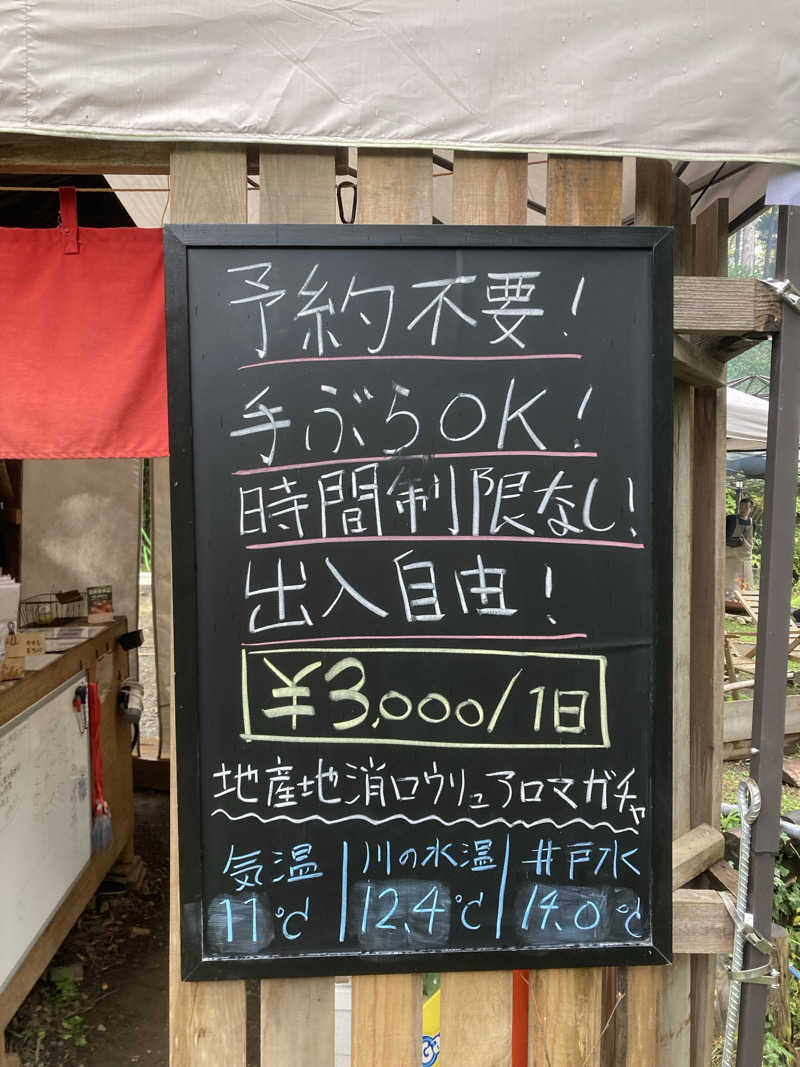 予約不要!
手ぶらOK!
時間制限なし!
出入自由!
¥3,000/1日
地産地消ロウリュアロマガチャ
気温 川の水温 井戸水
11℃ 12.4℃ 14.0℃